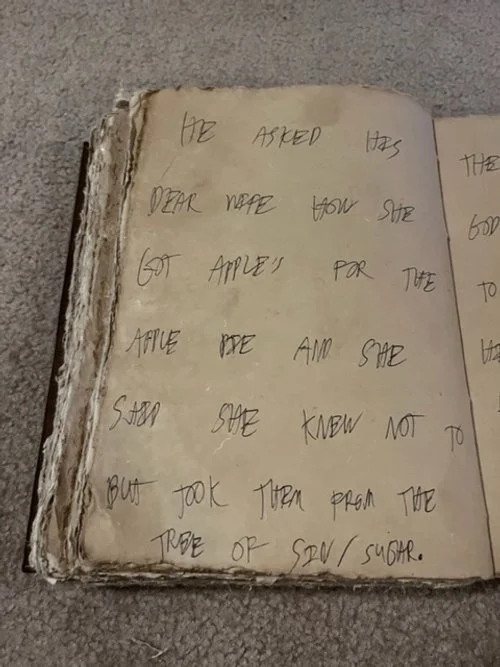 HE ASKED HIS
DEAR WIFE HOW SHE
GOT APPLE'S FOR THE
APPLE PIE AND SHE
SAID SHE KNEW NOT TO
BUT TOOK THEM FROM THE
TREE OF SIN/SUGAR.
THE
GOD
TO